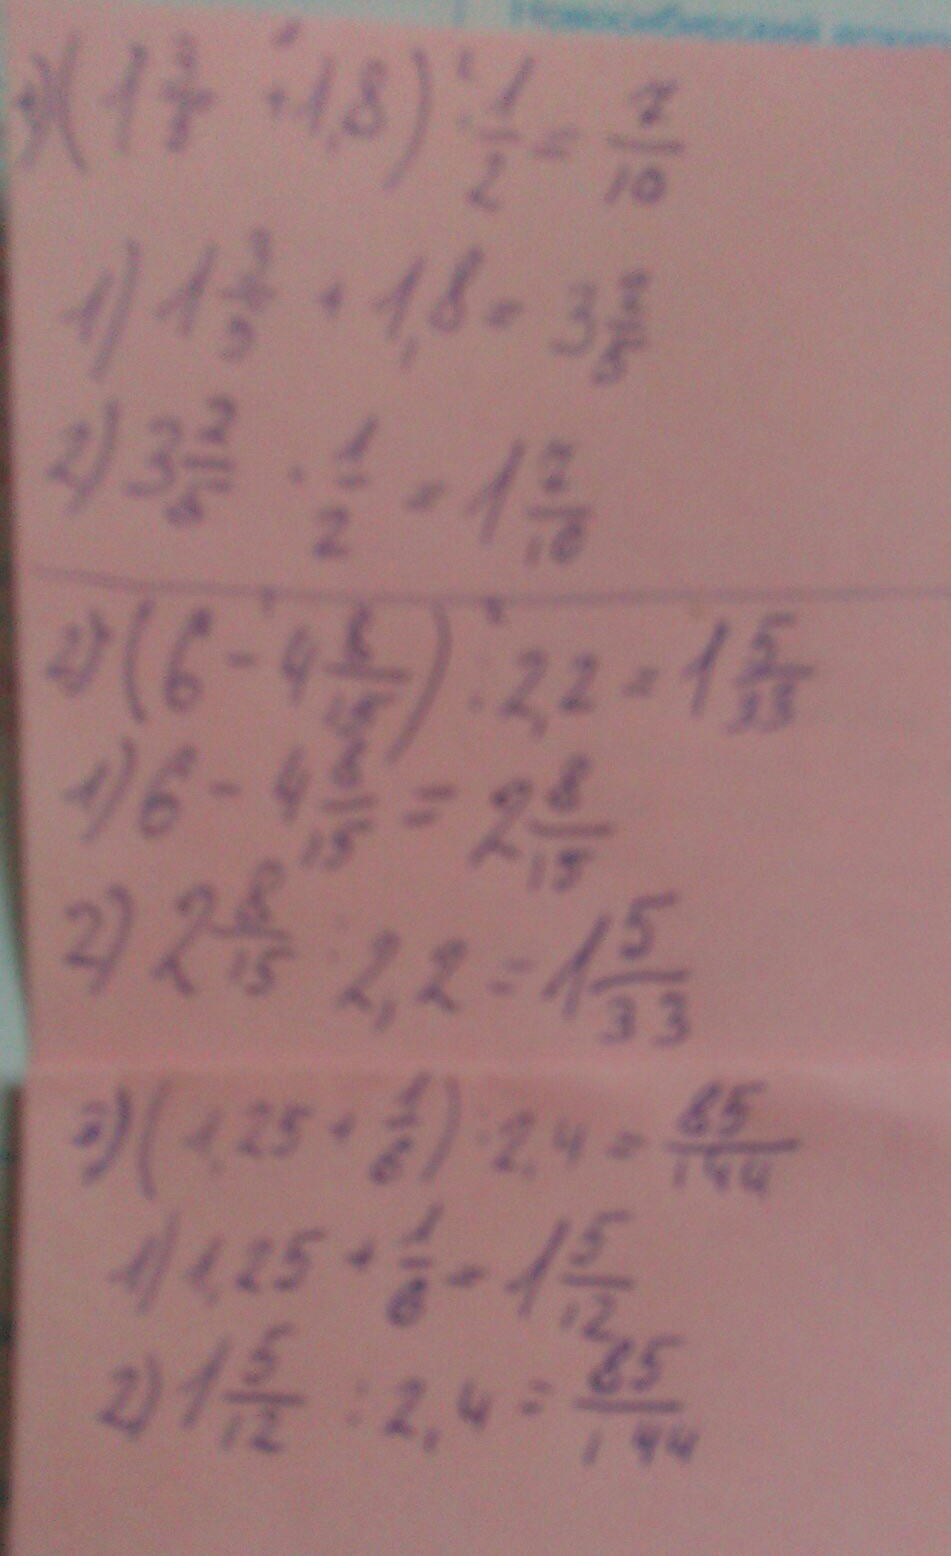 Новосибирский
+ 1,8) : 1/2 = 7/10
1) + 1,8 = 3 2/5
2) 3 2/5 · 1/2 = 1 7/10
2) (6 - 4 8/15) : 2,2 = 1 5/33
1) 6 - 4 8/15 = 2 8/15
2) 2 8/15 : 2,2 = 1 5/33
3) (1,25 + 1/6) : 2,4 = 85/144
1) 1,25 + 1/6 = 1 5/12
2) 1 5/12 : 2,4 = 85/144